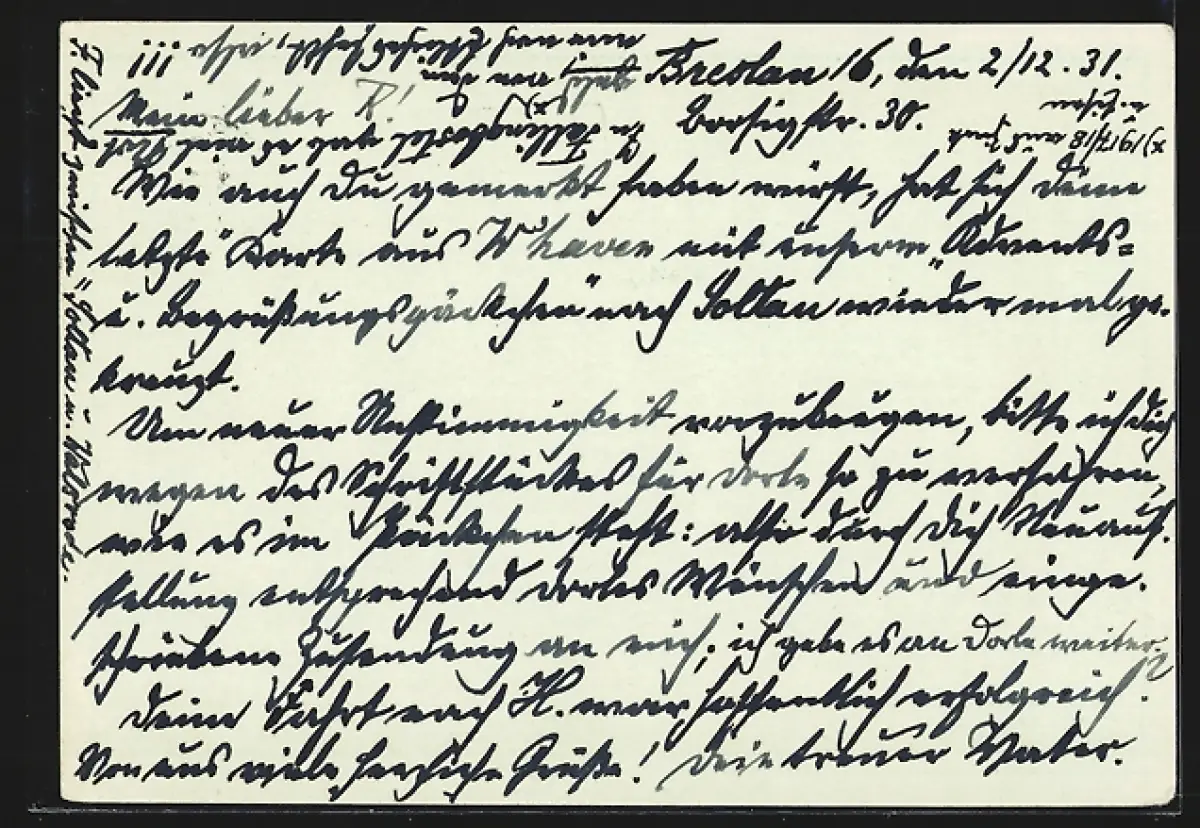 Breslau 16, den 2/12. 31.
Borsigstr. 30.
Mein lieber R!
Wie auch Du gemerkt haben wirst, hat sich Deine
letzte Karte aus W'haven mit unserm „Advents-
u. Begrüßungspäckchen" nach Soltau wieder mal ge-
kreuzt.
Um neuer Unstimmigkeit vorzubeugen, bitte ich Dich
wegen des Schriftstückes für Dorle so zu verfahren,
wie es im Päckchen steht: also durch Dich Neuauf-
stellung entsprechend Dorles Wünschen und einge-
schriebene Zusendung an mich; ich gebe es an Dorle weiter.
Deine Fahrt nach H. war hoffentlich erfolgreich?
Von uns viele herzliche Grüße! Dein treuer Vater.
liegt zwischen „Soltau u. Walsrode.
x) 1917/18